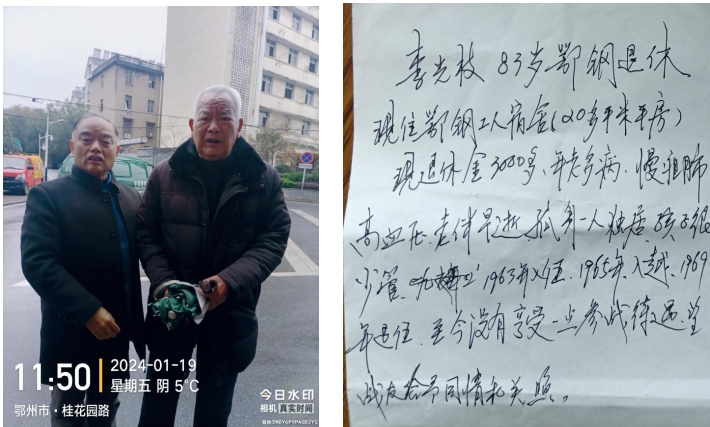 11:50
2024-01-19
星期五 阴 5°C
鄂州市·桂花园路
今日水印
相机 真实时间
李先枝 83岁鄂钢退休
现住鄂钢工人宿舍(20多平米平房)
现退休金3000多、年老多病、慢阻肺
高血压、老伴早逝、孤身一人独居 孩子很
少管、1963年入伍、1965年入越、1969
年退伍、至今没有享受一点参战待遇、望
战友给予同情和关照。